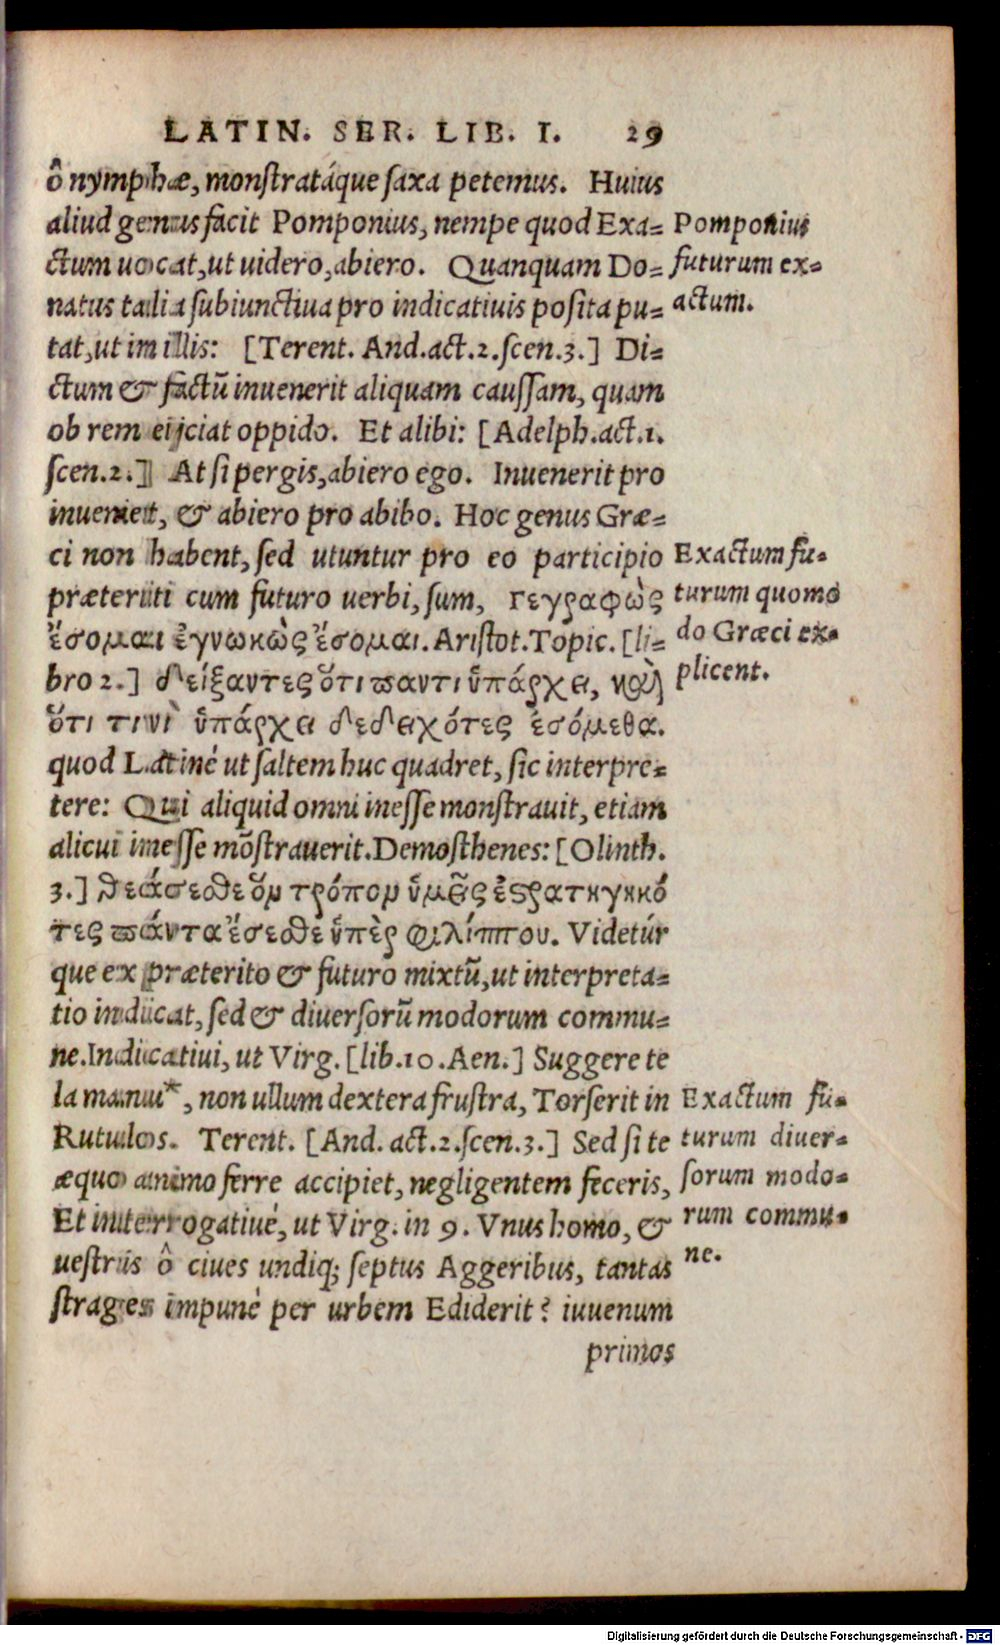 LATIN. SER. LIB. I. 29
ô nymphæ, monſtratáque ſaxa petemus. Huius
aliud genus facit Pomponius, nempe quod Exa=
ctum uocat, ut uidero, abiero. Quanquam Do=
natus talia ſubiunctiua pro indicatiuis poſita pu=
tat, ut in illis: [Terent. And. act. 2. ſcen. 3.] Di=
ctum & factū inuenerit aliquam cauſſam, quam
ob rem eijciat oppido. Et alibi: [Adelph. act. 1.
ſcen. 2.] At ſi pergis, abiero ego. Inuenerit pro
inueniet, & abiero pro abibo. Hoc genus Græ=
ci non habent, ſed utuntur pro eo participio
præteriti cum futuro uerbi, ſum, γεγραφὼς
ἔσομαι ἐγνωκὼς ἔσομαι. Ariſtot. Topic. [li=
bro 2.] δείξαντες ὅτι παντὶ ὑπάρχει, καὶ
ὅτι τινὶ ὑπάρχει δεδειχότες ἐσόμεθα.
quod Latinè ut ſaltem huc quadret, ſic interpre=
tere: Qui aliquid omni ineſſe monſtrauit, etiam
alicui ineſſe mōſtrauerit. Demoſthenes: [Olinth.
3.] θεάσεσθε ὃν τρόπον ὑμεῖς ἐστρατηγηκό
τες πάντα ἔσεσθε ὑπὲρ φιλίππου. Videtúr
que ex præterito & futuro mixtū, ut interpreta=
tio indicat, ſed & diuerſorū modorum commu=
ne. Indicatiui, ut Virg. [lib. 10. Aen.] Suggere te
la manu*, non ullum dextera fruſtra, Torſerit in
Rutulos. Terent. [And. act. 2. ſcen. 3.] Sed ſi te
æquo animo ferre accipiet, negligentem feceris,
Et interrogatiuè, ut Virg. in 9. Vnus homo, &
ueſtris ô ciues undiq; ſeptus Aggeribus, tantas
ſtrages impunè per urbem Ediderit? iuuenum
primos
Pomponius
futurum ex=
actum.
Exactum fu=
turum quomo
do Græci ex=
plicent.
Exactum fu=
turum diuer=
ſorum modo=
rum commu=
ne.
Digitalisierung gefördert durch die Deutsche Forschungsgemeinschaft - DFG